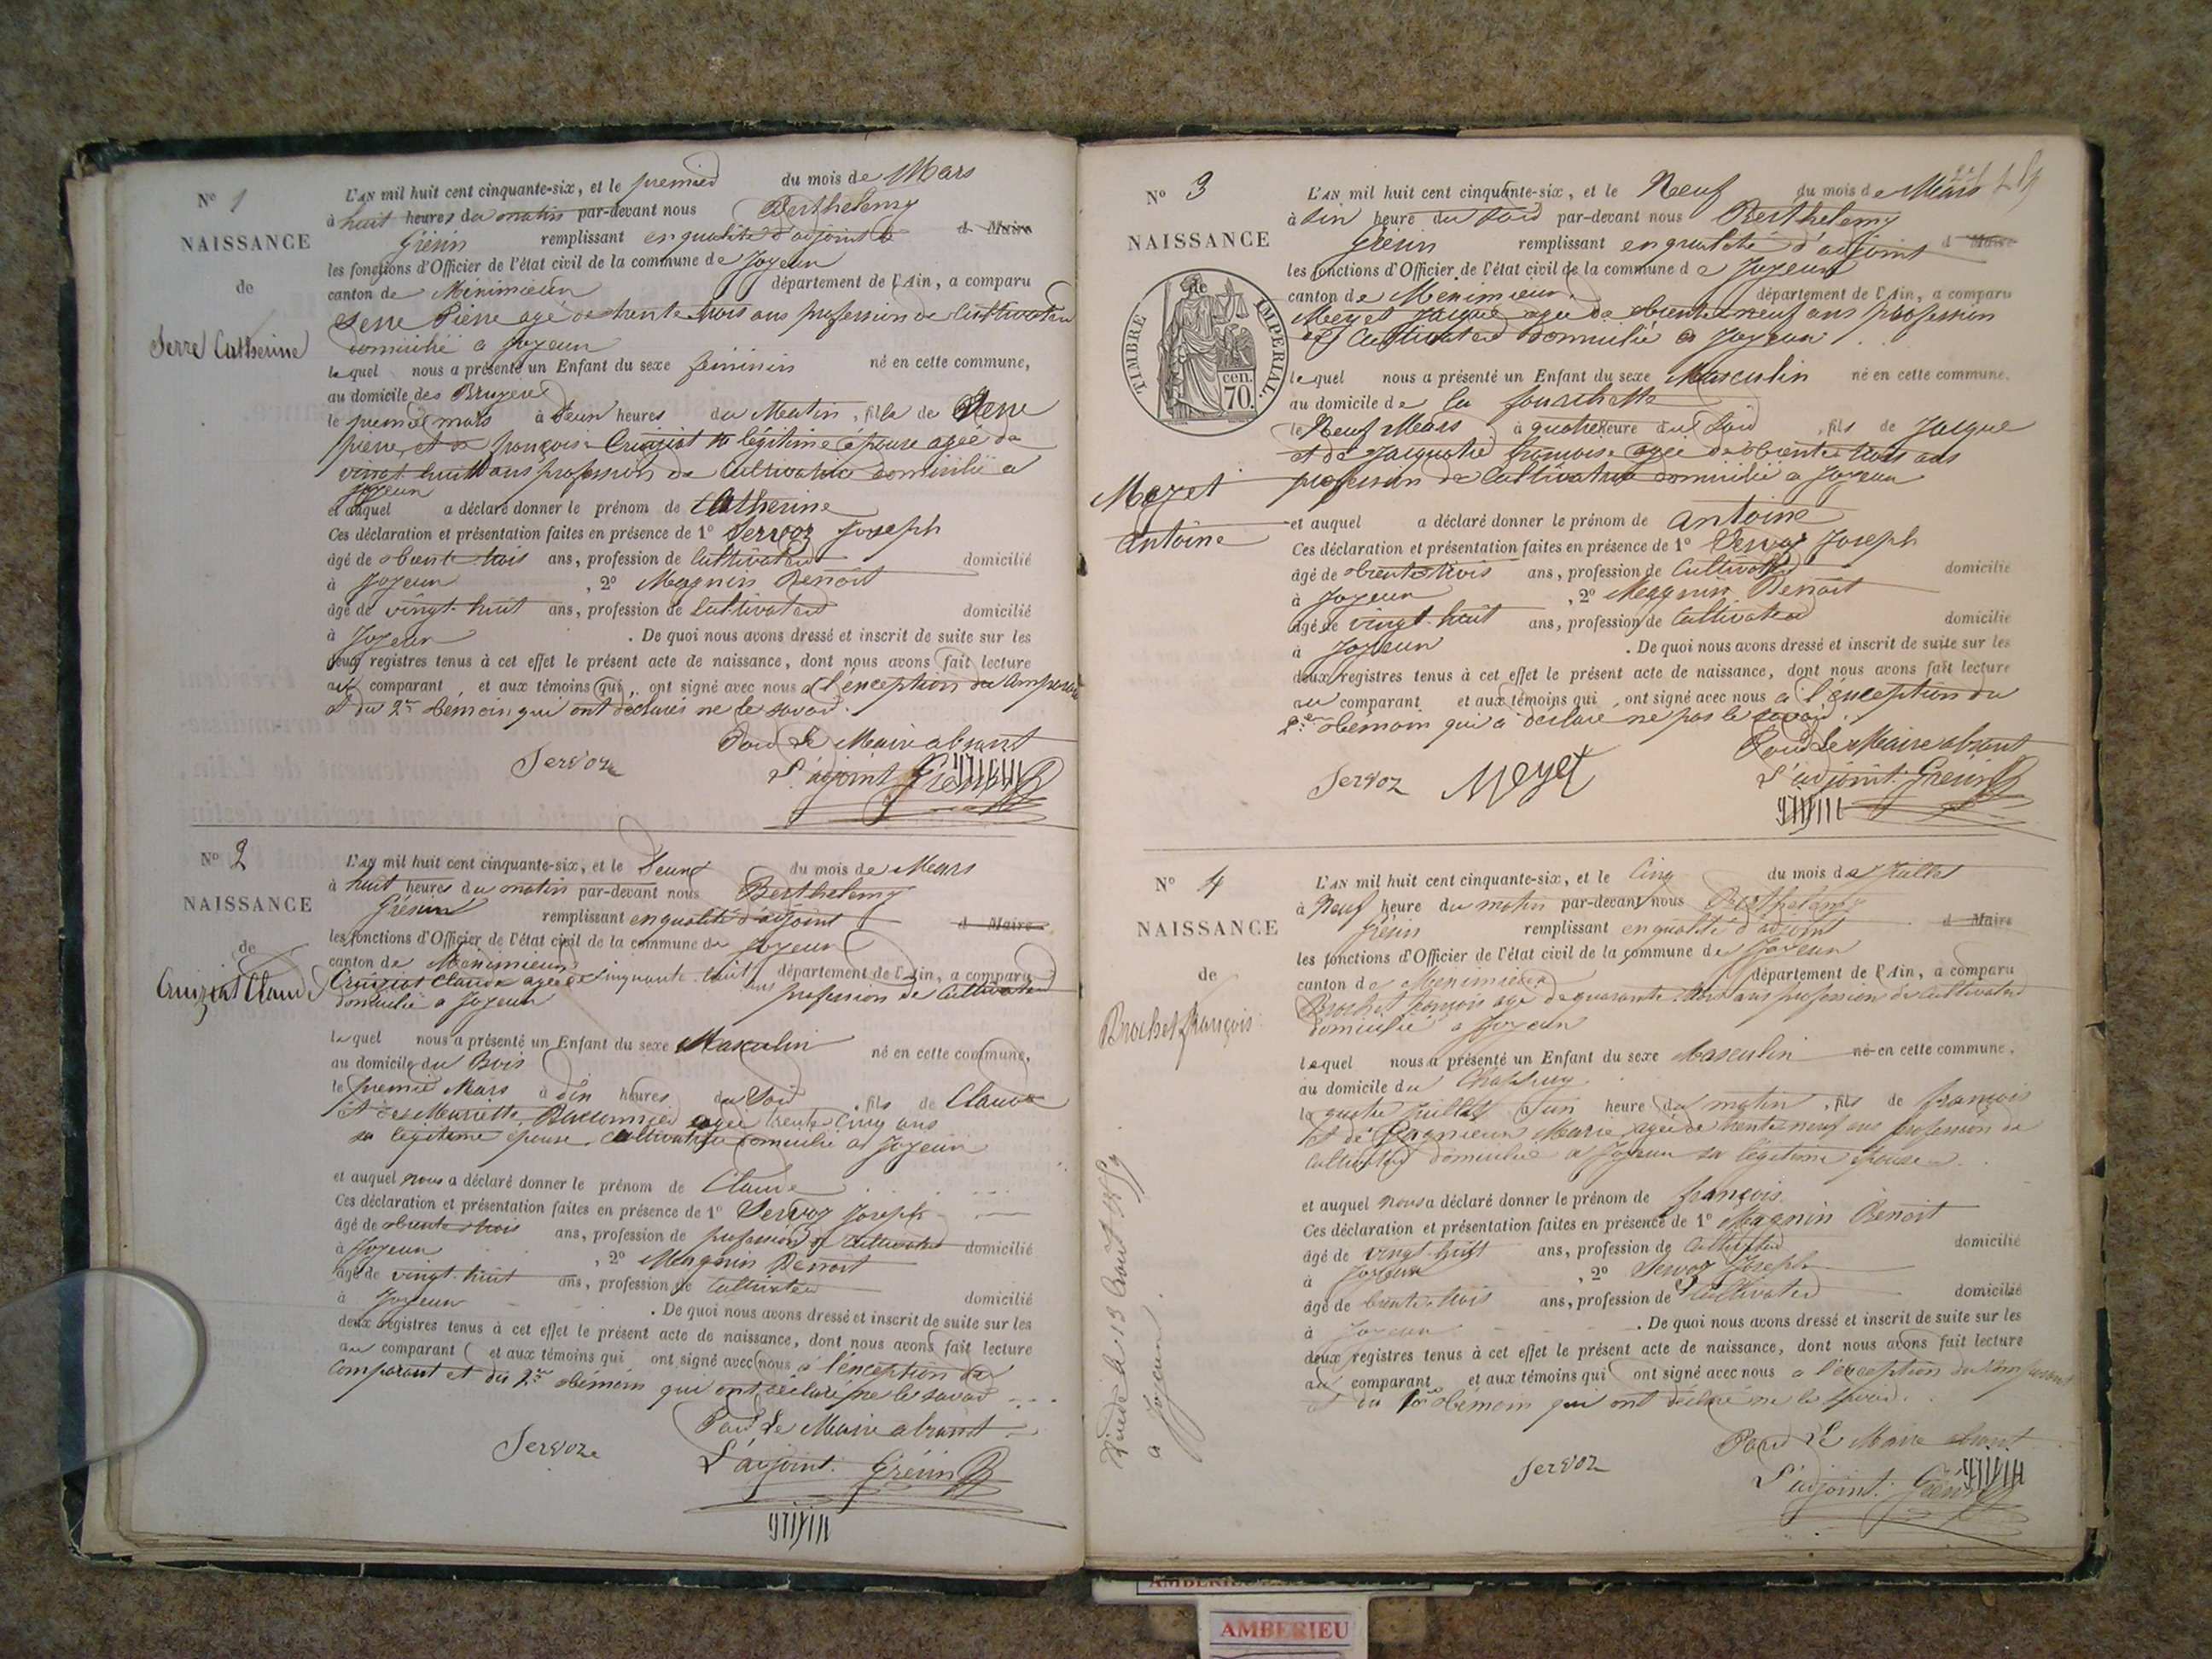 N° 1
NAISSANCE
de
Serre Catherine
L'AN mil huit cent cinquante-six, et le premier du mois de Mars
à huit heures du matin par-devant nous Berthelemy
Grénin remplissant en qualité d'adjoint le d Maire
les fonctions d'Officier de l'état civil de la commune de Joyeux
canton de Meximieux département de l'Ain, a comparu
Serre Pierre agé de trente trois ans profession de Cultivateur
domicilié a Joyeux
lequel nous a présenté un Enfant du sexe féminin né en cette commune,
au domicile des Bruyere
le premier mars à deux heures du Matin, fille de Serre
pierre, et de françoise Cruiziat sa légitime épouse agée de
vingt huit ans profession de Cultivatrice domicilié a
Joyeux
et auquel a déclaré donner le prénom de Catherine
Ces déclaration et présentation faites en présence de 1° Servoz Joseph
âgé de trente trois ans, profession de Cultivateur domicilié
à Joyeux , 2° Magnin Benoit
âgé de vingt huit ans, profession de Cultivateur domicilié
à Joyeux . De quoi nous avons dressé et inscrit de suite sur les
deux registres tenus à cet effet le présent acte de naissance, dont nous avons fait lecture
au comparant et aux témoins qui, ont signé avec nous a l'exception du comparant
et du 2me témoin qui ont déclarés ne le savoir.
Pour Le Maire absent
Servoz L'adjoint Grénin
N° 2
NAISSANCE
de
Cruiziat Claude
L'AN mil huit cent cinquante-six, et le deux du mois de Mars
à huit heures du matin par-devant nous Berthelemy
Grénin remplissant en qualité d'adjoint d Maire
les fonctions d'Officier de l'état civil de la commune de Joyeux
canton de Meximieux département de l'Ain, a comparu
Cruiziat Claude agé de cinquante huit ans profession de Cultivateur
domicilié a Joyeux
lequel nous a présenté un Enfant du sexe Masculin né en cette commune,
au domicile du Bois
le premier Mars à dix heures du Soir, fils de Claude
et de Marriette agée trente cinq ans
sa légitime épouse, Cultivatrice domicilié a Joyeux
et auquel nous a déclaré donner le prénom de Claude
Ces déclaration et présentation faites en présence de 1° Servoz Joseph
âgé de trente trois ans, profession de profession de cultivateur domicilié
à Joyeux , 2° Magnin Benoit
âgé de vingt huit ans, profession de Cultivateur
à Joyeux domicilié
. De quoi nous avons dressé et inscrit de suite sur les
deux registres tenus à cet effet le présent acte de naissance, dont nous avons fait lecture
au comparant et aux témoins qui ont signé avec nous a l'exception du
comparant et du 2me témoin qui ont déclaré ne le savoir
Pour Le Maire absent
Servoz L'adjoint. Grénin
N° 3
NAISSANCE
TIMBRE IMPERIAL
cen.
70.
Meyet
antoine
L'AN mil huit cent cinquante-six, et le Neuf du mois de Mars
à six heure du soir par-devant nous Berthelemy
Grénin remplissant en qualité d'adjoint d Maire
les fonctions d'Officier de l'état civil de la commune de Joyeux
canton de Meximieux département de l'Ain, a comparu
Meyet Jacque agé de trente neuf ans profession
de Cultivateur domicilié a Joyeux
lequel nous a présenté un Enfant du sexe Masculin né en cette commune,
au domicile de la fourchette
le Neuf Mars à quatre heure du Soir, fils de Jacque
et de françoise agée de trente trois ans
profession de Cultivatrice domicilié a Joyeux
et auquel a déclaré donner le prénom de antoine
Ces déclaration et présentation faites en présence de 1° Servoz Joseph
âgé de trente trois ans, profession de Cultivateur domicilié
à Joyeux , 2° Magnin Benoit
âgé de vingt huit ans, profession de Cultivateur domicilié
à Joyeux . De quoi nous avons dressé et inscrit de suite sur les
deux registres tenus à cet effet le présent acte de naissance, dont nous avons fait lecture
au comparant et aux témoins qui, ont signé avec nous a l'exception du
2me témoin qui a déclaré ne pas le savoir
Pour Le Maire absent
Servoz Meyet L'adjoint. Grénin
N° 4
NAISSANCE
de
Brochet françois
L'AN mil huit cent cinquante-six, et le Cinq du mois de Juillet
à Neuf heure du matin par-devant nous Berthelemy
Grénin remplissant en qualité d'adjoint d Maire
les fonctions d'Officier de l'état civil de la commune de Joyeux
canton de Meximieux département de l'Ain, a comparu
Brochet françois agé de quarante trois ans profession de Cultivateur
domicilié a Joyeux
lequel nous a présenté un Enfant du sexe Masculin né en cette commune,
au domicile du
le quatre Juillet à une heure du matin, fils de françois
et de Marie agée de trente neuf ans profession de
Cultivateur domicilié a Joyeux sa légitime épouse
et auquel nous a déclaré donner le prénom de françois
Ces déclaration et présentation faites en présence de 1° Magnin Benoit
âgé de vingt huit ans, profession de Cultivateur domicilié
à Joyeux , 2° Servoz Joseph
âgé de trente trois ans, profession de Cultivateur domicilié
à Joyeux . De quoi nous avons dressé et inscrit de suite sur les
deux registres tenus à cet effet le présent acte de naissance, dont nous avons fait lecture
au comparant et aux témoins qui ont signé avec nous a l'exception du comparant
et du 1er témoin qui ont déclaré ne le savoir.
Pour Le Maire absent
Servoz L'adjoint. Grénin
le 13 Aout 1859
a Joyeux.
AMBERIEU